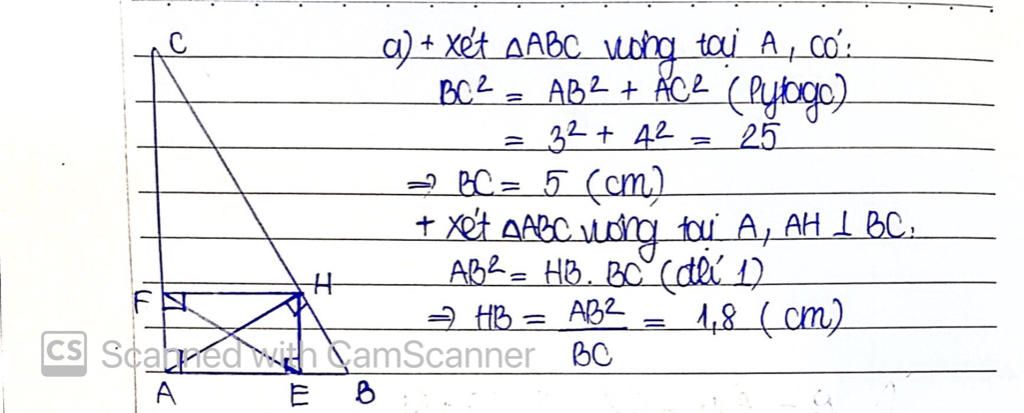 C
a) + xét ΔABC vuông tại A, có:
BC² = AB² + AC² (Pytago)
= 3² + 4² = 25
⇒ BC = 5 (cm)
+ xét ΔABC vuông tại A, AH ⊥ BC,
AB² = HB. BC (đlí 1)
F H
⇒ HB = AB²/BC = 1,8 (cm)
CS Scanned with CamScanner
A E B